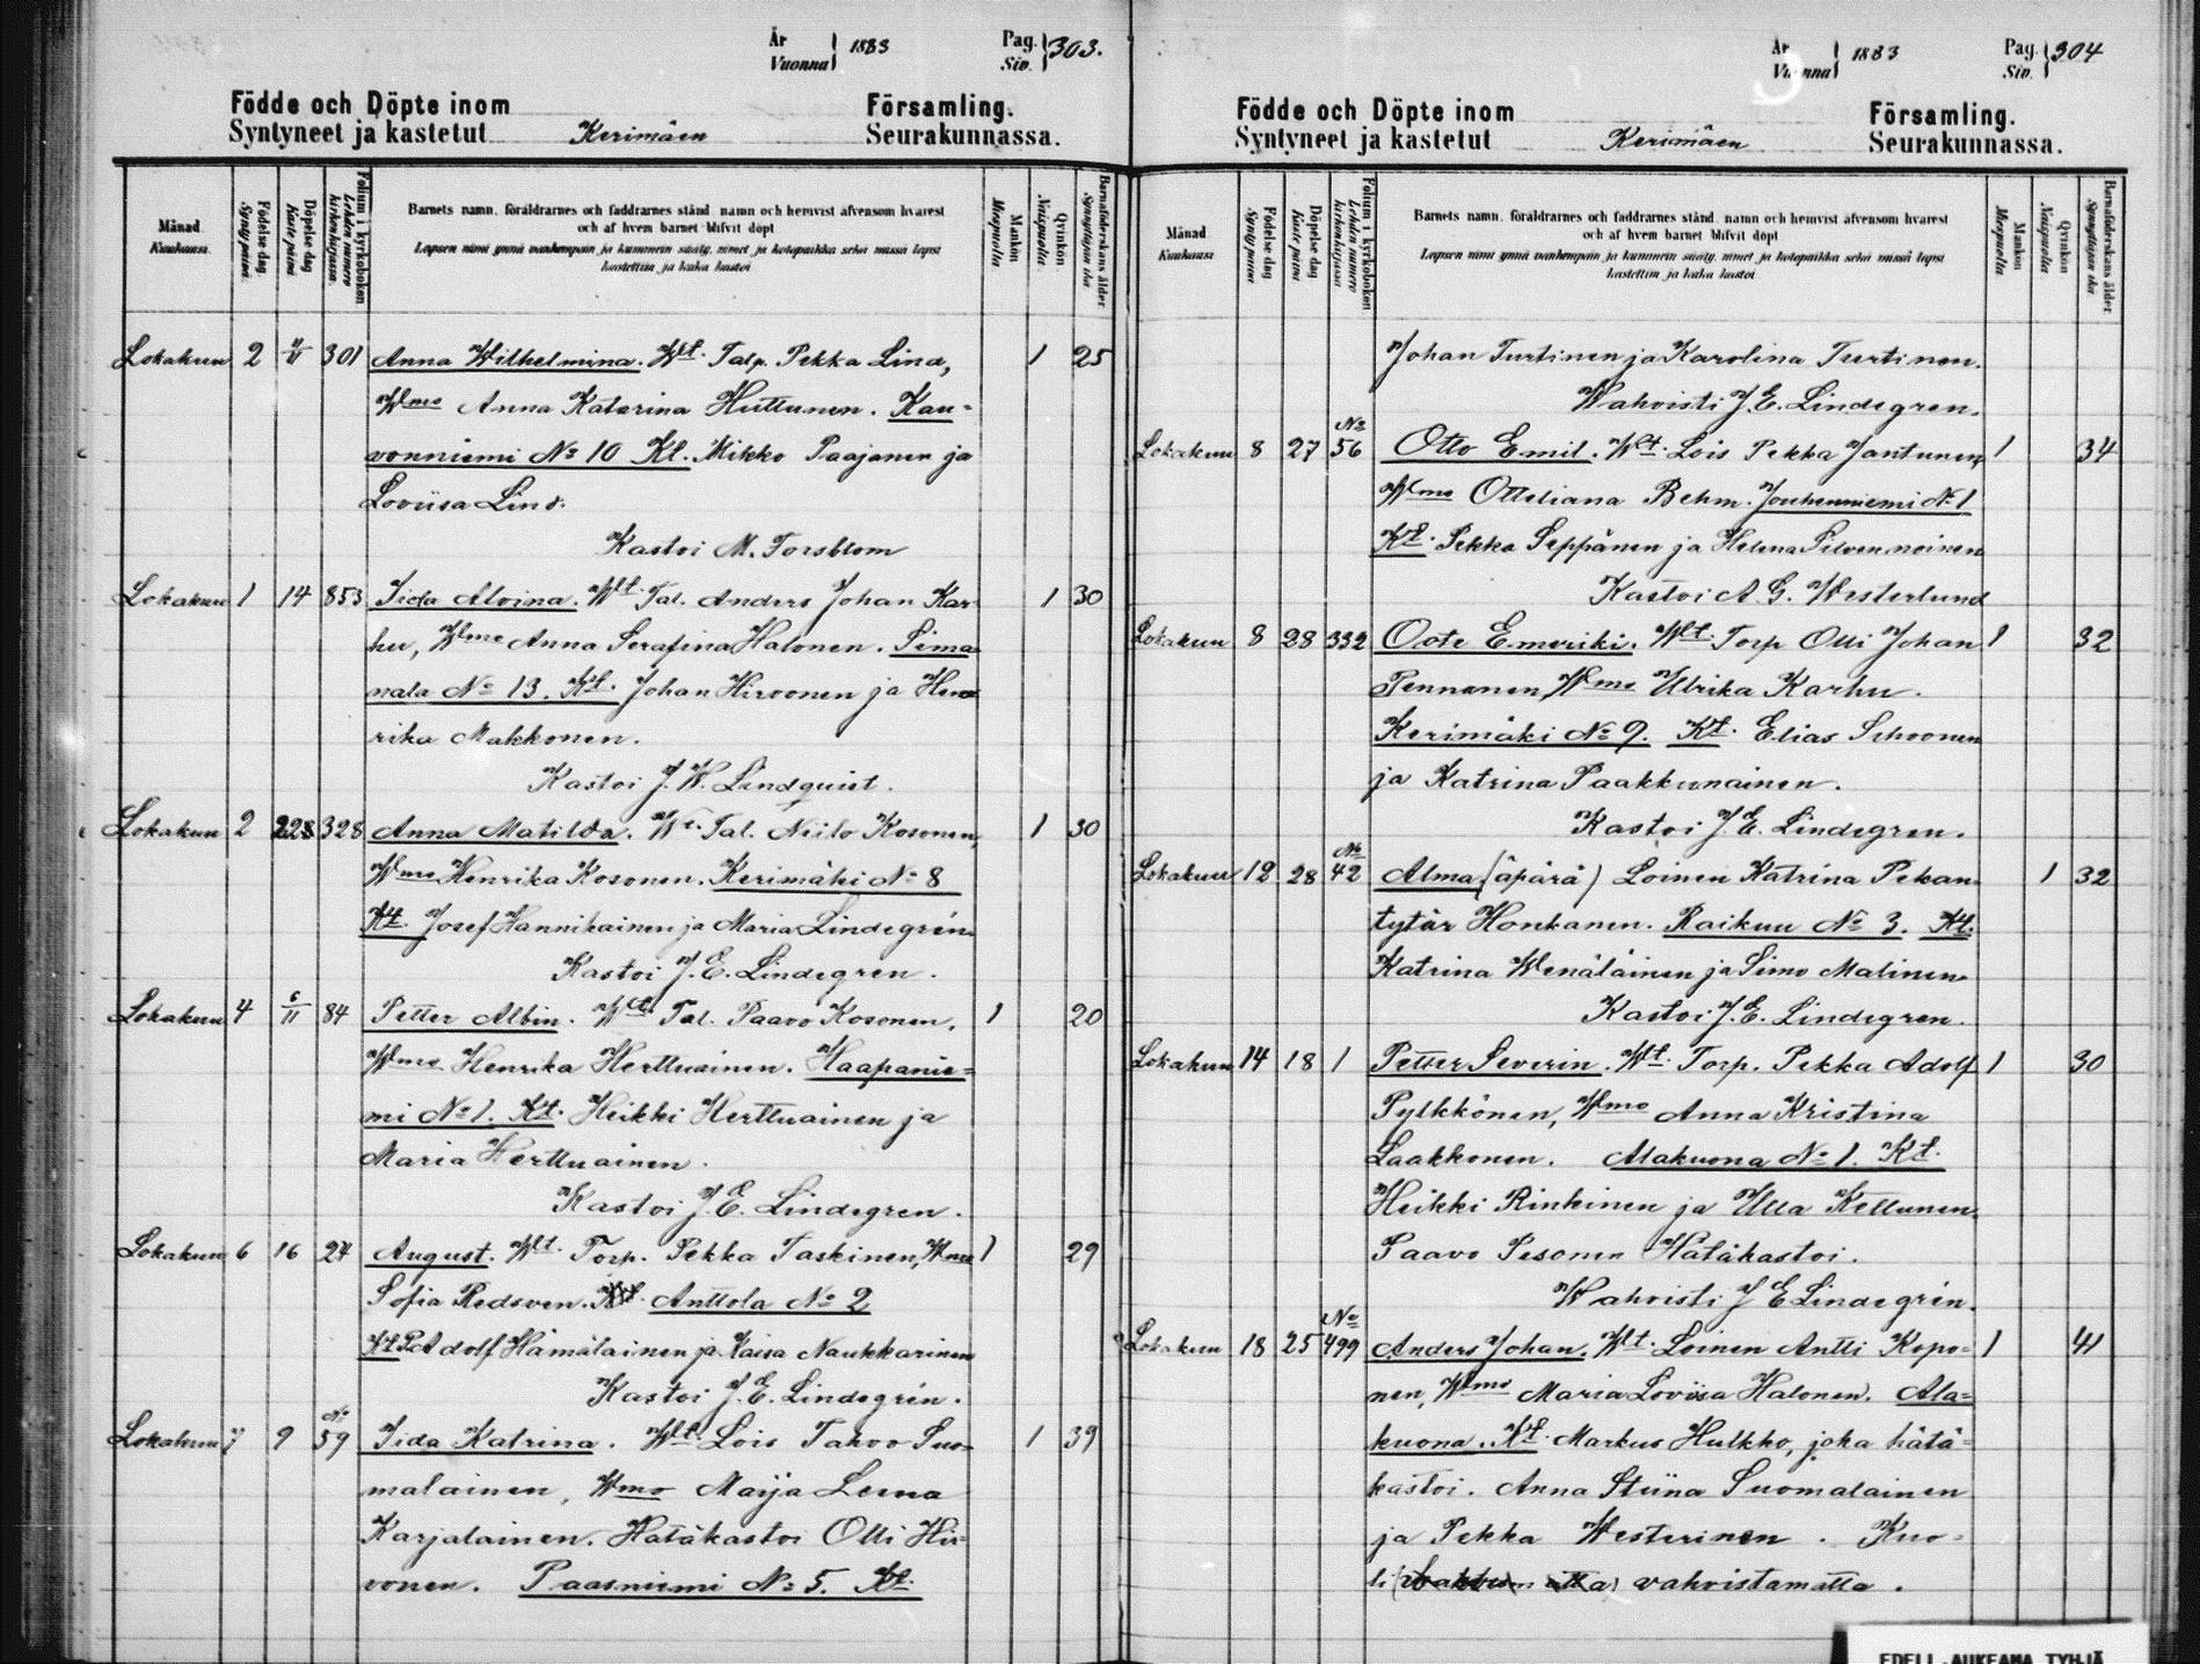 År Vuonna } 1883 Pag. Siv. } 303.
Födde och Döpte inom Församling.
Syntyneet ja kastetut Kerimäen Seurakunnassa.
Månad Kuukausi.
Födelse dag Synty päivä.
Döpelse dag Kaste päivä
Folium i kyrkoboken Lehden numero kirkonkirjassa.
Barnets namn, föräldrarnes och faddrarnes stånd, namn och hemvist äfvensom hvarest
och af hvem barnet blifvit döpt
Lapsen nimi ynnä vanhempain ja kummein sääty, nimet ja kotopaikka sekä missä lapsi
kastettiin ja kuka kastoi
Mankön Miespuolia
Qvinkön Naispuolia.
Barnaföderskans ålder Synnyttäjän ikä
Lokakuu 2 11/11 301 Anna Wilhelmina. Wt. Talp. Pekka Lind, 1 25
Wmo Anna Katarina Huttunen. Kau-
vonniemi No 10 Kt. Mikko Paajanen ja
Loviisa Lind.
Kastoi M. Forsblom
Lokakuu 1 14 853 Iida Alvina. Wt. Tal. Anders Johan Kar- 1 30
hu, Wmo Anna Serafina Halonen. Sima
nala No 13. Kt. Johan Hirvonen ja Hen
rika Makkonen.
Kastoi J. W. Lindquist.
Lokakuu 2 28 328 Anna Matilda. Wt. Tal. Niilo Kosonen, 1 30
Wmo Henrika Kosonen. Kerimäki No 8
Kt. Josef Hannikainen ja Maria Lindegrén.
Kastoi J. E. Lindegren.
Lokakuu 4 6/11 84 Petter Albin. Wt. Tal. Paavo Kosonen, 1 20
Wmo Henrika Herttuainen. Haapanie-
mi No 1. Kt. Heikki Herttuainen ja
Maria Herttuainen.
Kastoi J. E. Lindegren.
Lokakuu 6 16 24 August. Wt. Torp. Pekka Taskinen, Wmo 1 29
Sofia Redsven. Anttola No 2
Kt. Adolf Hämäläinen ja Kaisa Naukkarinen
Kastoi J. E. Lindegrén.
Lokakuu 7 9 No 59 Iida Katrina. Wt. Lois Tahvo Suo- 1 39
malainen, Wmo Maija Leena
Karjalainen. Hätäkastoi Olli Hir-
vonen. Paasniemi No 5. Kt.
År Vuonna } 1883 Pag. Siv. } 304
Födde och Döpte inom Församling.
Syntyneet ja kastetut Kerimäen Seurakunnassa.
Månad Kuukausi
Födelse dag Synty päivä
Döpelse dag Kaste päivä
Folium i kyrkoboken Lehden numero kirkonkirjassa
Barnets namn, föräldrarnes och faddrarnes stånd, namn och hemvist äfvensom hvarest
och af hvem barnet blifvit döpt
Lapsen nimi ynnä vanhempain ja kummein sääty, nimet ja kotopaikka sekä missä lapsi
kastettiin ja kuka kastoi
Mankön Miespuolia
Qvinkön Naispuolia
Barnaföderskans ålder Synnyttäjän ikä
Johan Turtinen ja Karolina Turtinen.
Wahvisti J. E. Lindegren.
Lokakuu 8 27 No 56 Otto Emil. Wt. Lois Pekka Jantunen, 1 34
Wmo Otteliana Behm. Jouhenniemi No 1
Kt. Pekka Seppänen ja Helena Silvennoinen
Kastoi A. G. Westerlund
Lokakuu 8 28 332 Oote Emeriki. Wt. Torp Olli Johan 1 32
Pennanen, Wmo Ulrika Karhu.
Kerimäki No 9. Kt. Elias Silvonen
ja Katrina Paakkunainen.
Kastoi J. E. Lindegren.
Lokakuu 12 28 No 42 Alma (äpärä) Loinen Katrina Pekan 1 32
tytär Honkanen. Raikuu No 3. Kt.
Katrina Wenäläinen ja Simo Malinen
Kastoi J. E. Lindegren.
Lokakuu 14 18 1 Petter Severin. Wt. Torp. Pekka Adolf 1 30
Pylkkönen, Wmo Anna Kristina
Laakkonen. Alakuona No 1. Kt.
Heikki Rinkinen ja Ulla Kellunen.
Paavo Pesonen Hätäkastoi.
Wahvisti J E Lindegrén.
Lokakuu 18 25 No 499 Anders Johan. Wt. Loinen Antti Kopo- 1 41
nen, Wmo Maria Loviisa Halonen. Ala-
kuona. Kt. Markus Hulkko, joka hätä-
kastoi. Anna Stiina Suomalainen
ja Pekka Westerinen. Kuo-
li vahvistamatta.
EDELL. AUKEAMA TYHJÄ